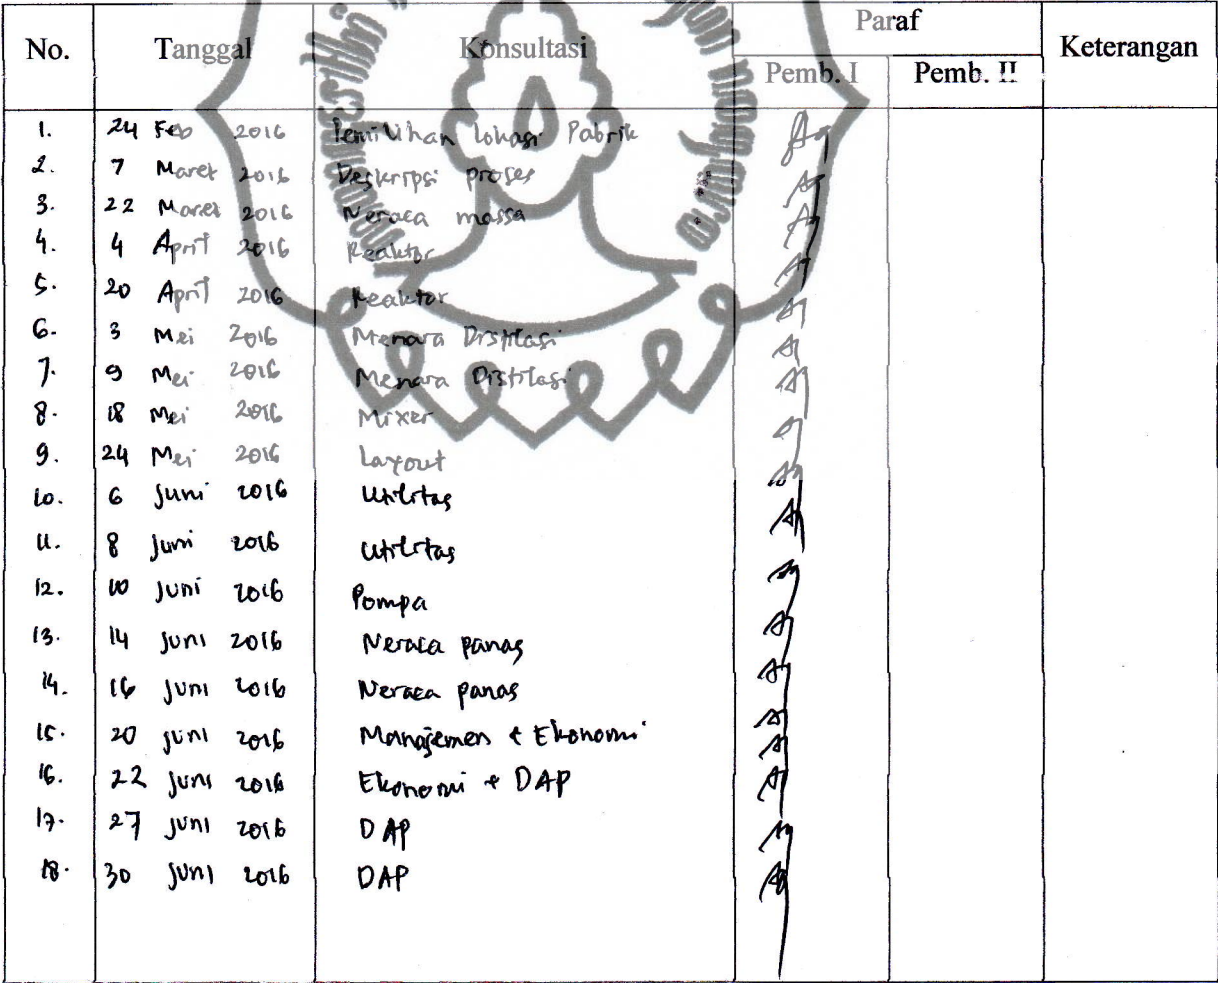 No. Tanggal Konsultasi Paraf Keterangan
Pemb. I Pemb. II
1. 24 Feb 2016 Pemilihan Lokasi Pabrik
2. 7 Maret 2016 Deskripsi proses
3. 22 Maret 2016 Neraca massa
4. 4 April 2016 Reaktor
5. 20 April 2016 Reaktor
6. 3 Mei 2016 Menara Distilasi
7. 9 Mei 2016 Menara Distilasi
8. 18 Mei 2016 Mixer
9. 24 Mei 2016 Layout
10. 6 Juni 2016 Utilitas
11. 8 Juni 2016 Utilitas
12. 10 Juni 2016 Pompa
13. 14 Juni 2016 Neraca panas
14. 16 Juni 2016 Neraca panas
15. 20 Juni 2016 Manajemen & Ekonomi
16. 22 Juni 2016 Ekonomi + DAP
17. 27 Juni 2016 DAP
18. 30 Juni 2016 DAP